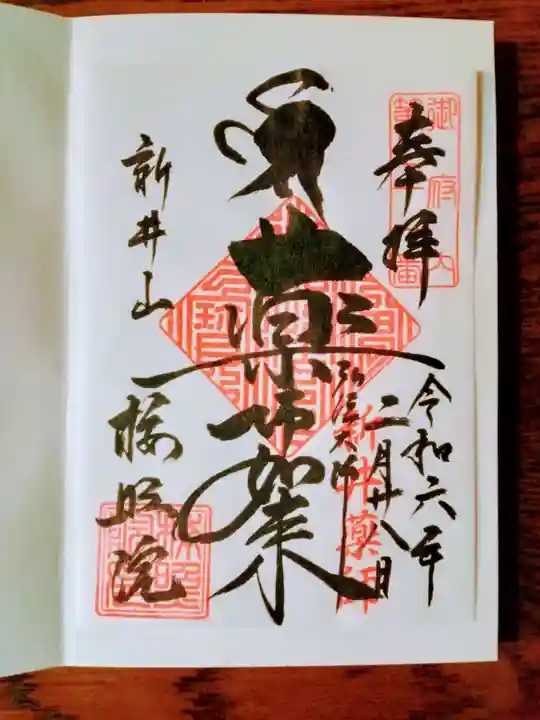 奉拝
令和六年
二月廿八日
新井薬師
弘法大師
薬師如来
新井山
梅照院